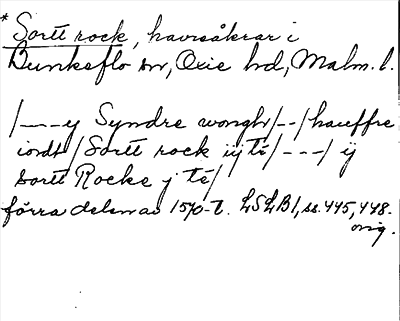 * Sortt rock, havreåkrar i
Bunkeflo sn, Oxie hd, Malm. l.
/---y Syndre wongh/--/hauffre
iordt/Sortt rock iij té/---/ij
Sortt Rocke j té/
förra delen av 1570-t. LSLB1, ss. 445, 448.
orig.